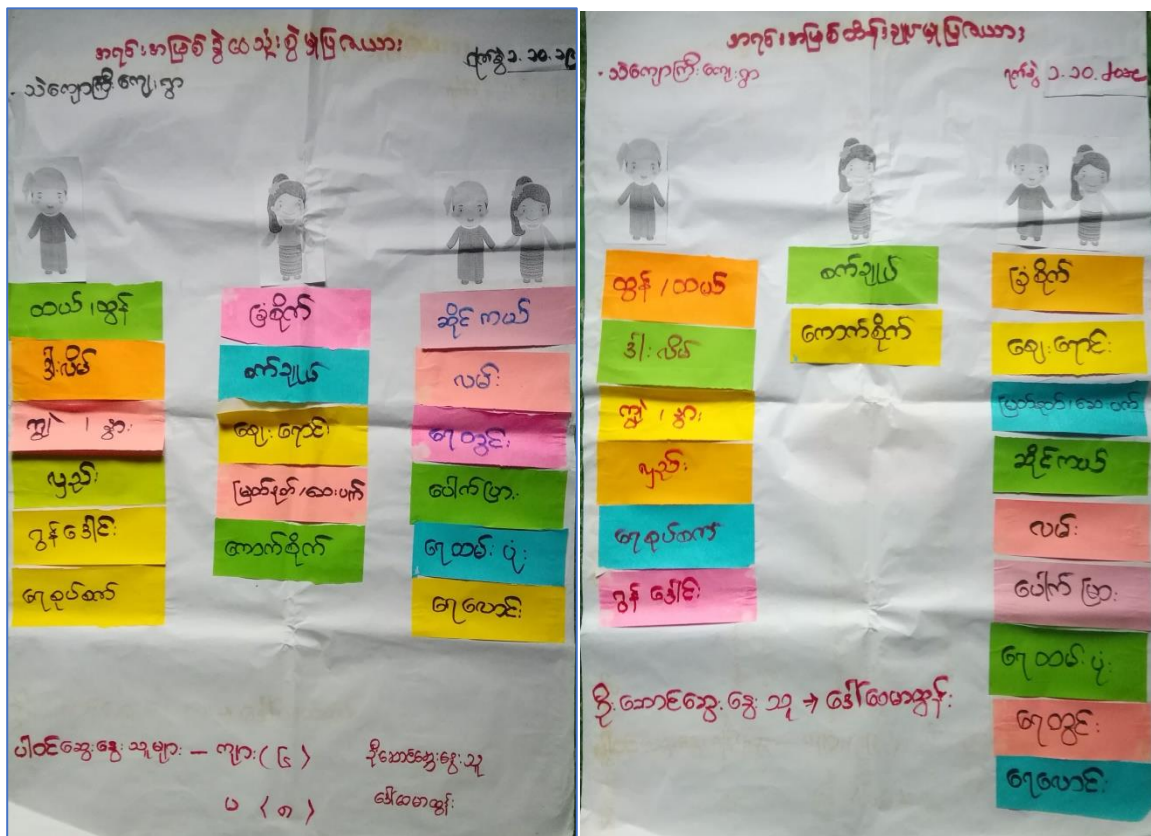 အရင်းအမြစ်ခွဲဝေသုံးစွဲမှုပြဇယား
ရက်စွဲ ၁.၁၀.၁၉
သဲကျောကြီးကျေးရွာ
ထယ် / ထွန်
ဒါးလိမ်
ကျွဲ / နွား
လှည်း
ဂွန်ဒေါင်း
ရေစုပ်စက်
ခြံစိုက်
စက်ချုပ်
ဈေးရောင်း
မြတ်နုတ် / ဆေးပက်
ကောက်စိုက်
ဆိုင်ကယ်
လမ်း
ရေတွင်း
ပေါက်ပြား
ရေထမ်းပုံး
ရေလောင်း
ပါဝင်ဆွေးနွေးသူများ - ကျား (၆)
မ (၈)
ဦးဆောင်ဆွေးနွေးသူ
ဒေါ်ဝေမာထွန်း
အရင်းအမြစ်ထိန်းချုပ်မှုပြဇယား
သဲကျောကြီးကျေးရွာ
ရက်စွဲ ၁.၁၀.၂၀၁၉
ထွန် / ထယ်
ဒါးလိမ်
ကျွဲ / နွား
လှည်း
ရေစုပ်စက်
ဂွန်ဒေါင်း
စက်ချုပ်
ကောက်စိုက်
ခြံစိုက်
ဈေးရောင်း
မြတ်နုတ် / ဆေးပက်
ဆိုင်ကယ်
လမ်း
ပေါက်ပြား
ရေထမ်းပုံး
ရေတွင်း
ရေလောင်း
ဦးဆောင်ဆွေးနွေးသူ → ဒေါ်ဝေမာထွန်း